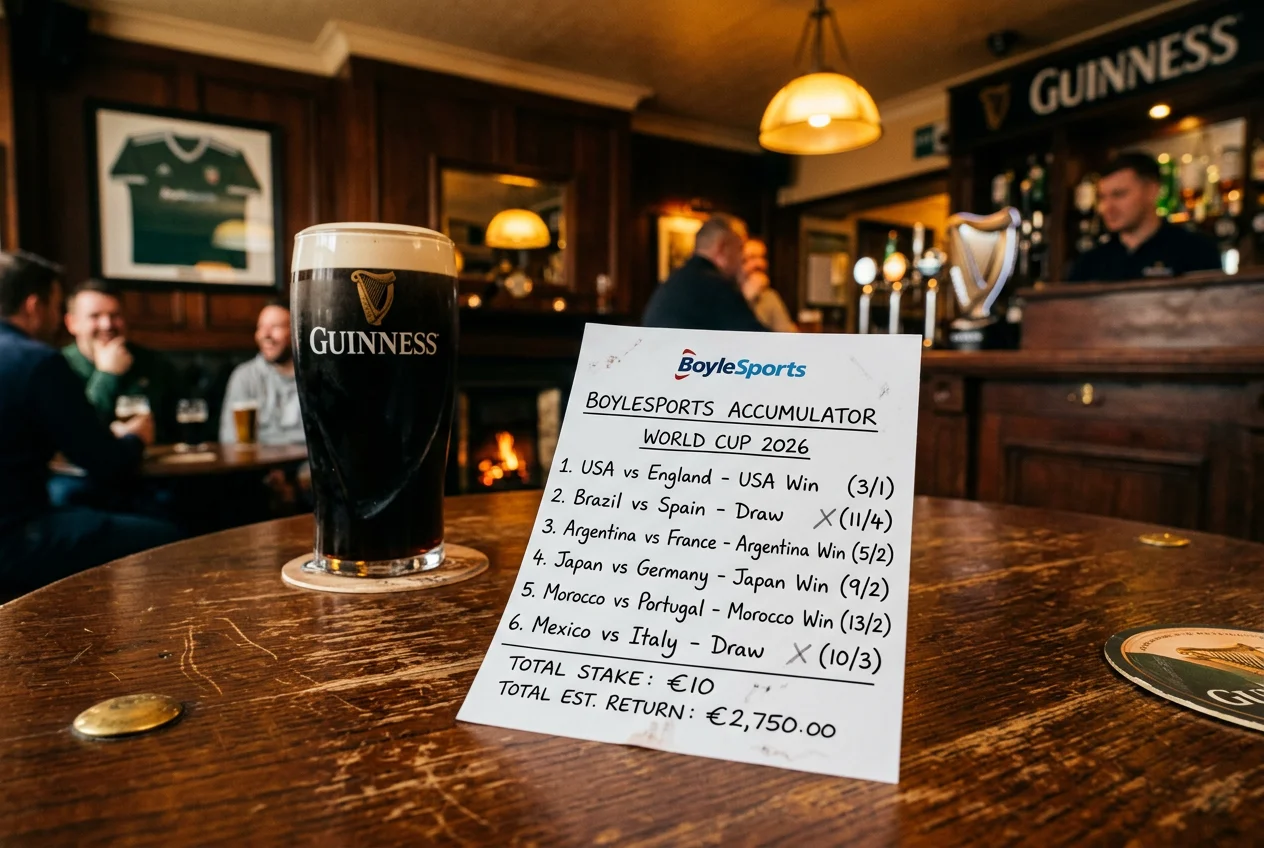 GUINNESS
GUINNESS
BoyleSports
BOYLESPORTS ACCUMULATOR
WORLD CUP 2026
1. USA vs England - USA Win (3/1)
2. Brazil vs Spain - Draw X (11/4)
3. Argentina vs France - Argentina Win (5/2)
4. Japan vs Germany - Japan Win (9/2)
5. Morocco vs Portugal - Morocco Win (13/2)
6. Mexico vs Italy - Draw X (10/3)
TOTAL STAKE: €10
TOTAL EST. RETURN: €2,750.00